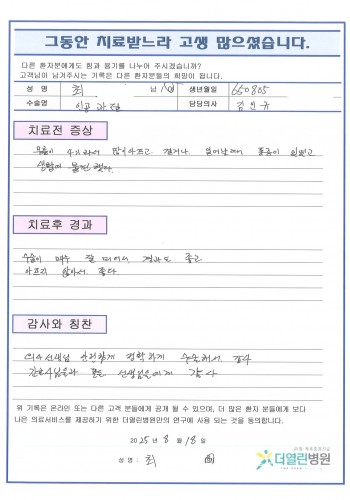 그동안 치료받느라 고생 많으셨습니다.
다른 환자분에게도 힘과 용기를 나누어 주시겠습니까?
고객님이 남겨주시는 기록은 다른 환자분들의 희망이 됩니다.
성 명 최 남 / 여 생년월일 650805
수술명 인공관절 담당의사 김인규
치료전 증상
무릎이 쑤시면서 많이 아프고 걷거나 일어날때 통증이 있었고
생활에 불편했다.
치료후 경과
수술이 매우 잘 되어서 경과도 좋고
아프지 않아서 좋다
감사와 칭찬
의사선생님 안전하게 정확하게 수술해서 감사
간호사님들과 모든 선생님들에게 감사
위 기록은 온라인 또는 다른 고객 분들에게 공개 될 수 있으며, 더 많은 환자 분들에게 보다
나은 의료서비스를 제공하기 위한 더열린병원만의 연구에 사용 되는 것을 동의합니다.
2025년 8월 18일
성 명 : 최
더열린병원